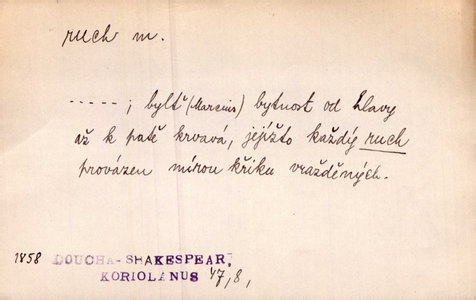 ruch m.
-----; bylť (Marcius) bytnost od hlavy
až k patě krvavá, jejížto každý ruch
provázen mírou křiku vražděných.
1858 DOUCHA-SHAKESPEAR,
KORIOLANUS 47,8,